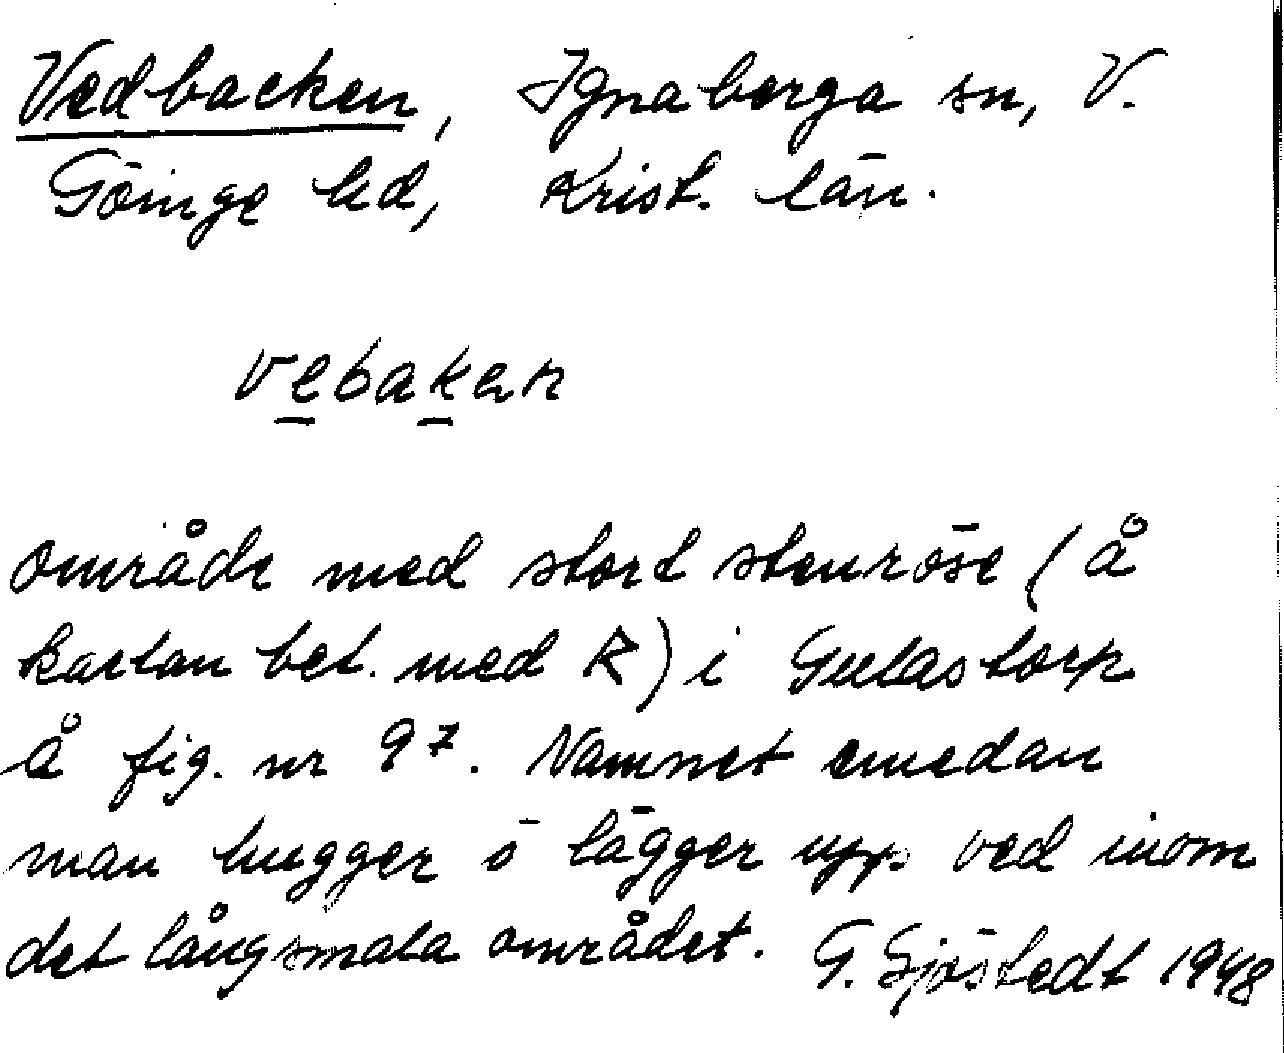 Vedbacken, Ignaberga sn, V.
Göinge hd, Krist. län.
vebakan
område med stort stenröse (å
kartan bet. med R) i Gulastorp
å fig. nr 97. Namnet emedan
man hugger ō lägger upp ved inom
det långsmala området. G. Sjöstedt 1948